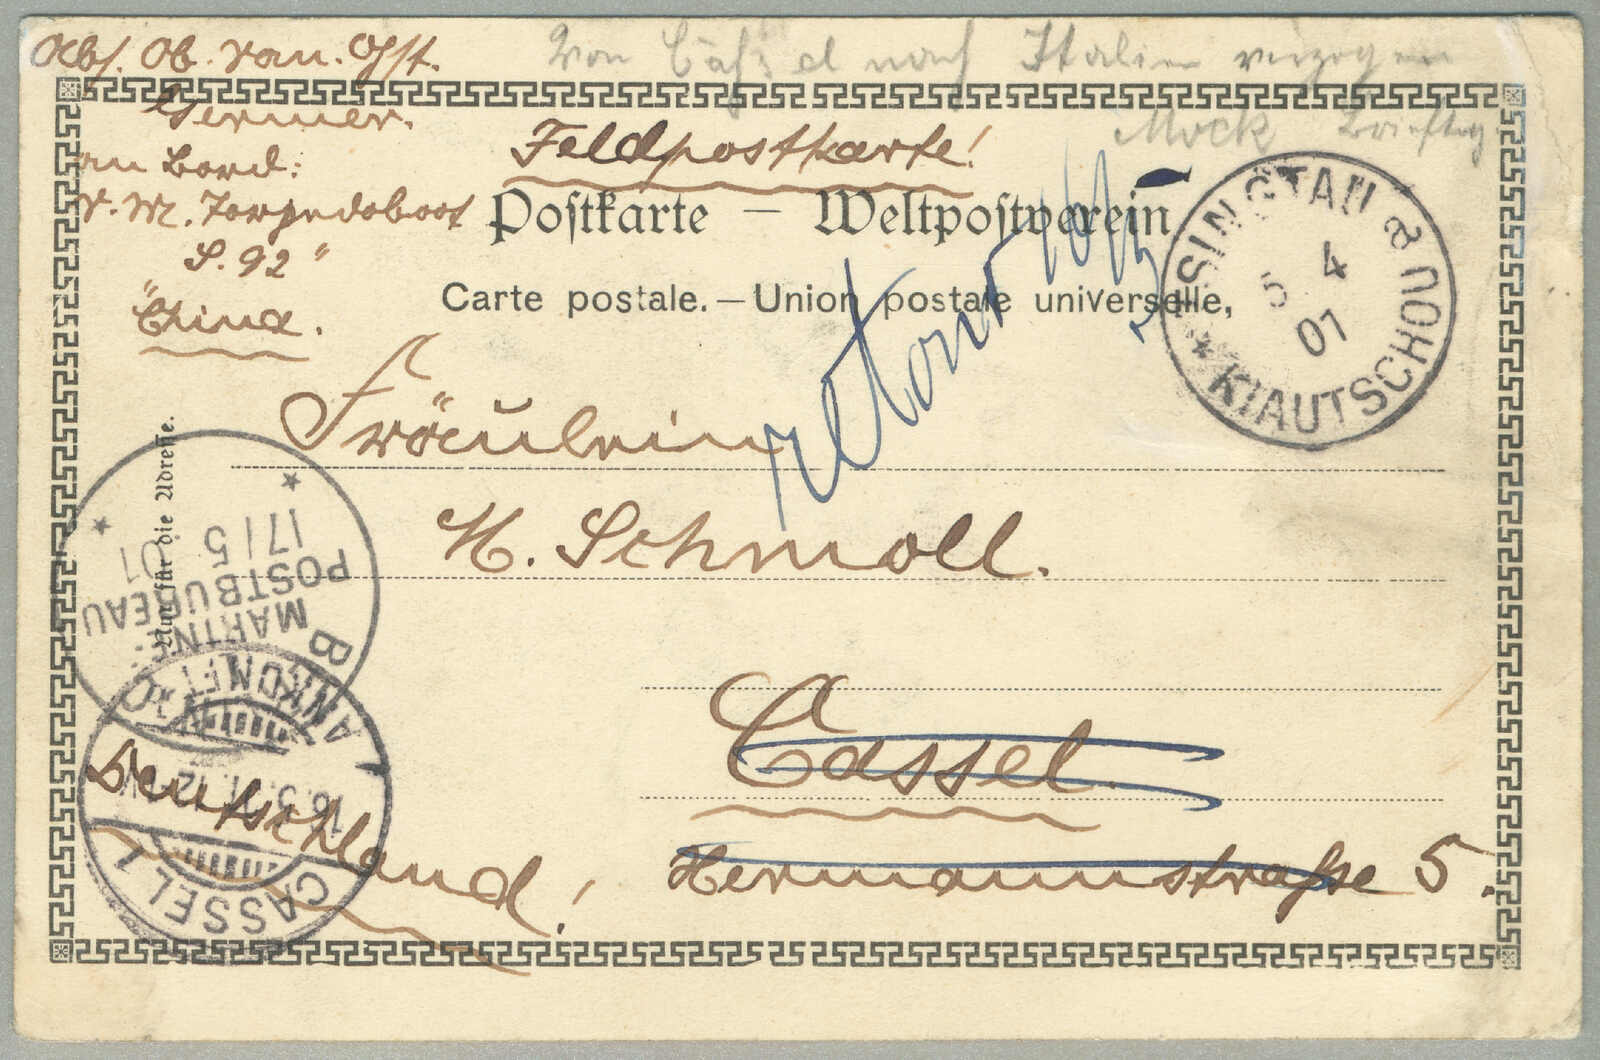 Abs. Ob.
Germer.
an Bord:
S. M. Torpedoboot
S. 92"
"China.
Von Cassel nach Italien verzogen
Mock
Feldpostkarte!
Postkarte — Weltpostverein
Carte postale.—Union postale universelle,
retour
TSINGTAU a
5 4
01
* KIAUTSCHOU
Fräulein
H. Schmoll.
Cassel.
Hermannstraße 5.
Deutschland!
Nur für die Adresse.
MARINE
POSTBUREAU
17/5
01
BERLIN C
ANKUNFT
CASSEL 1